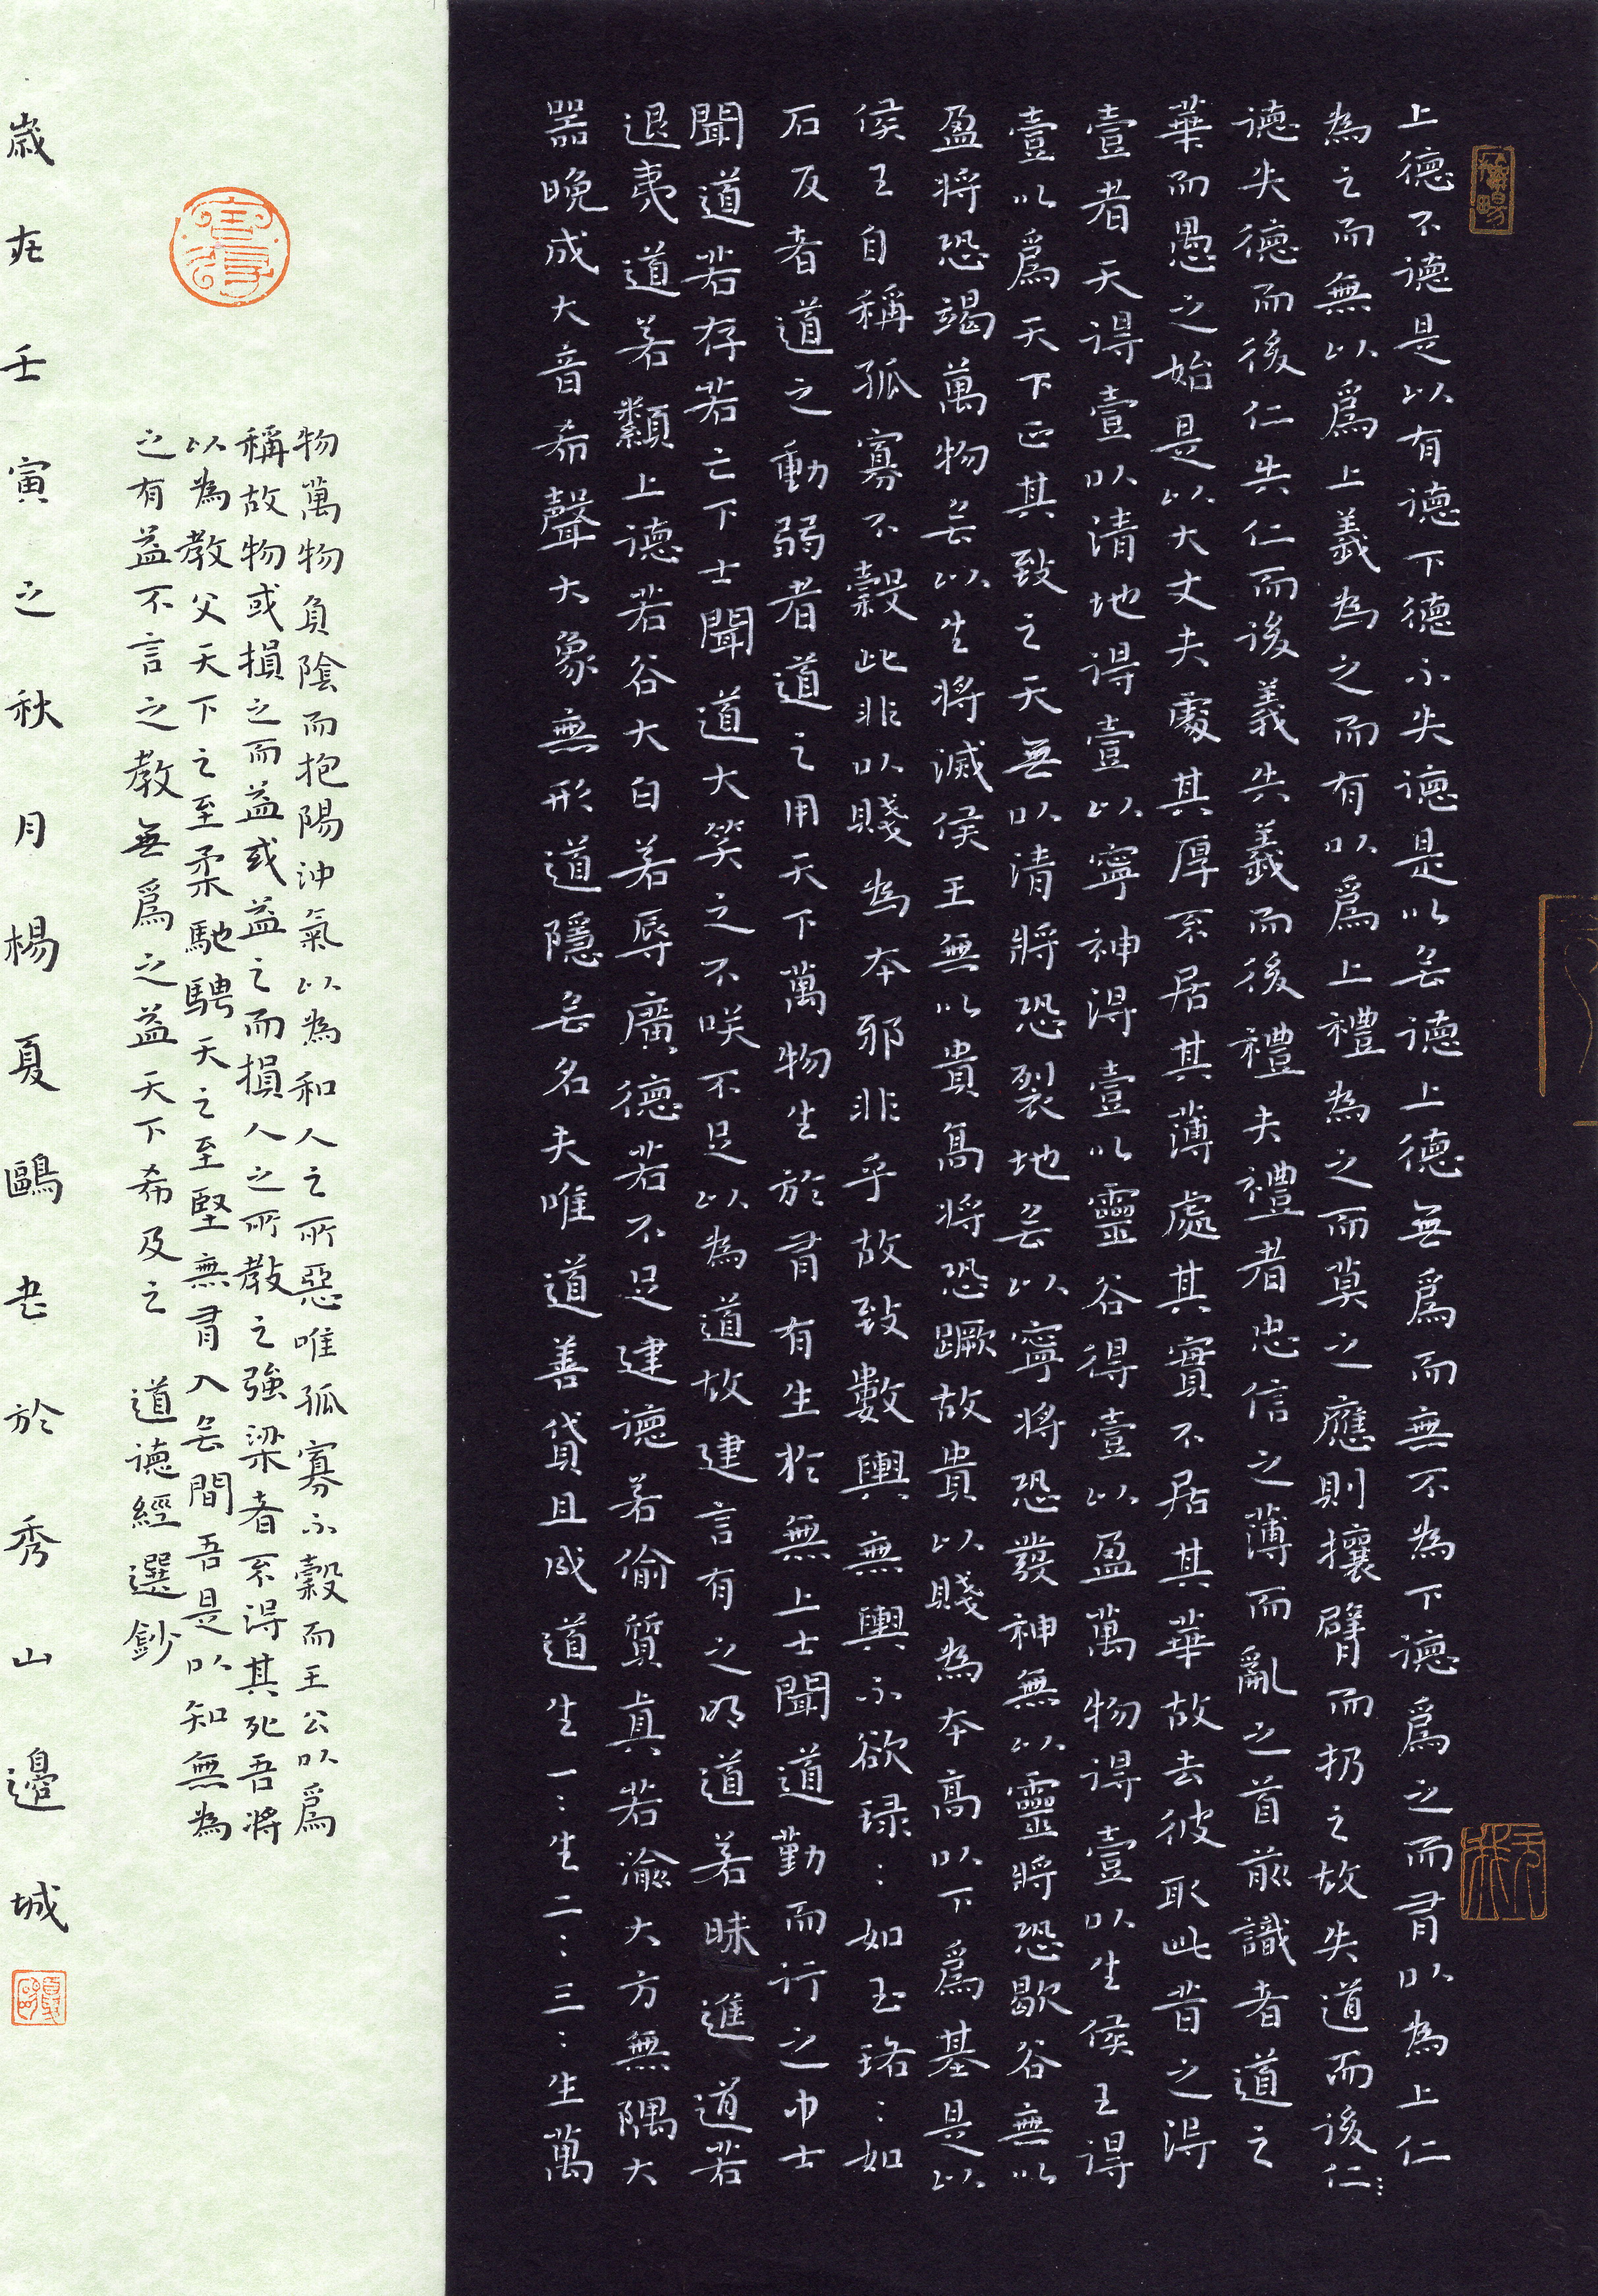 上德不德是以有德下德不失德是以无德上德無爲而無不為下德爲之而有以為上仁
為之而無以爲上義為之而有以爲上禮為之而莫之應則攘臂而扔之故失道而後仁⋮
德失德而後仁失仁而後義失義而後禮夫禮者忠信之薄而亂之首前識者道之
華而愚之始是以大丈夫處其厚不居其薄處其實不居其華故去彼取此昔之得
壹者天得壹以清地得壹以寧神得壹以靈谷得壹以盈萬物得壹以生侯王得
壹以爲天下正其致之天無以清將恐裂地无以寧將恐發神無以靈將恐歇谷無以
盈將恐竭萬物无以生將滅侯王無以貴高將恐蹶故貴以賤為本高以下爲基是以
侯王自稱孤寡不穀此非以賤為本邪非乎故致數輿無輿不欲琭:如玉珞:如
石反者道之動弱者道之用天下萬物生於有有生於無上士聞道勤而行之中士
聞道若存若亡下士聞道大笑之不咲不足以為道故建言有之明道若昧進道若
退夷道若纇上德若谷大白若辱廣德若不足建德若偷質真若渝大方無隅大
器晚成大音希聲大象無形道隱无名夫唯道善貸且成道生一:生二:三:生萬
物萬物負陰而抱陽沖氣以為和人之所惡唯孤寡不穀而王公以爲
稱故物或損之而益或益之而損人之所教之強梁者不得其死吾將
以為教父天下之至柔馳騁天之至堅無有入无間吾是以知無為
之有益不言之教無爲之益天下希及之 道德經選鈔
歲在壬寅之秋月楊夏鷗書於秀山邊城